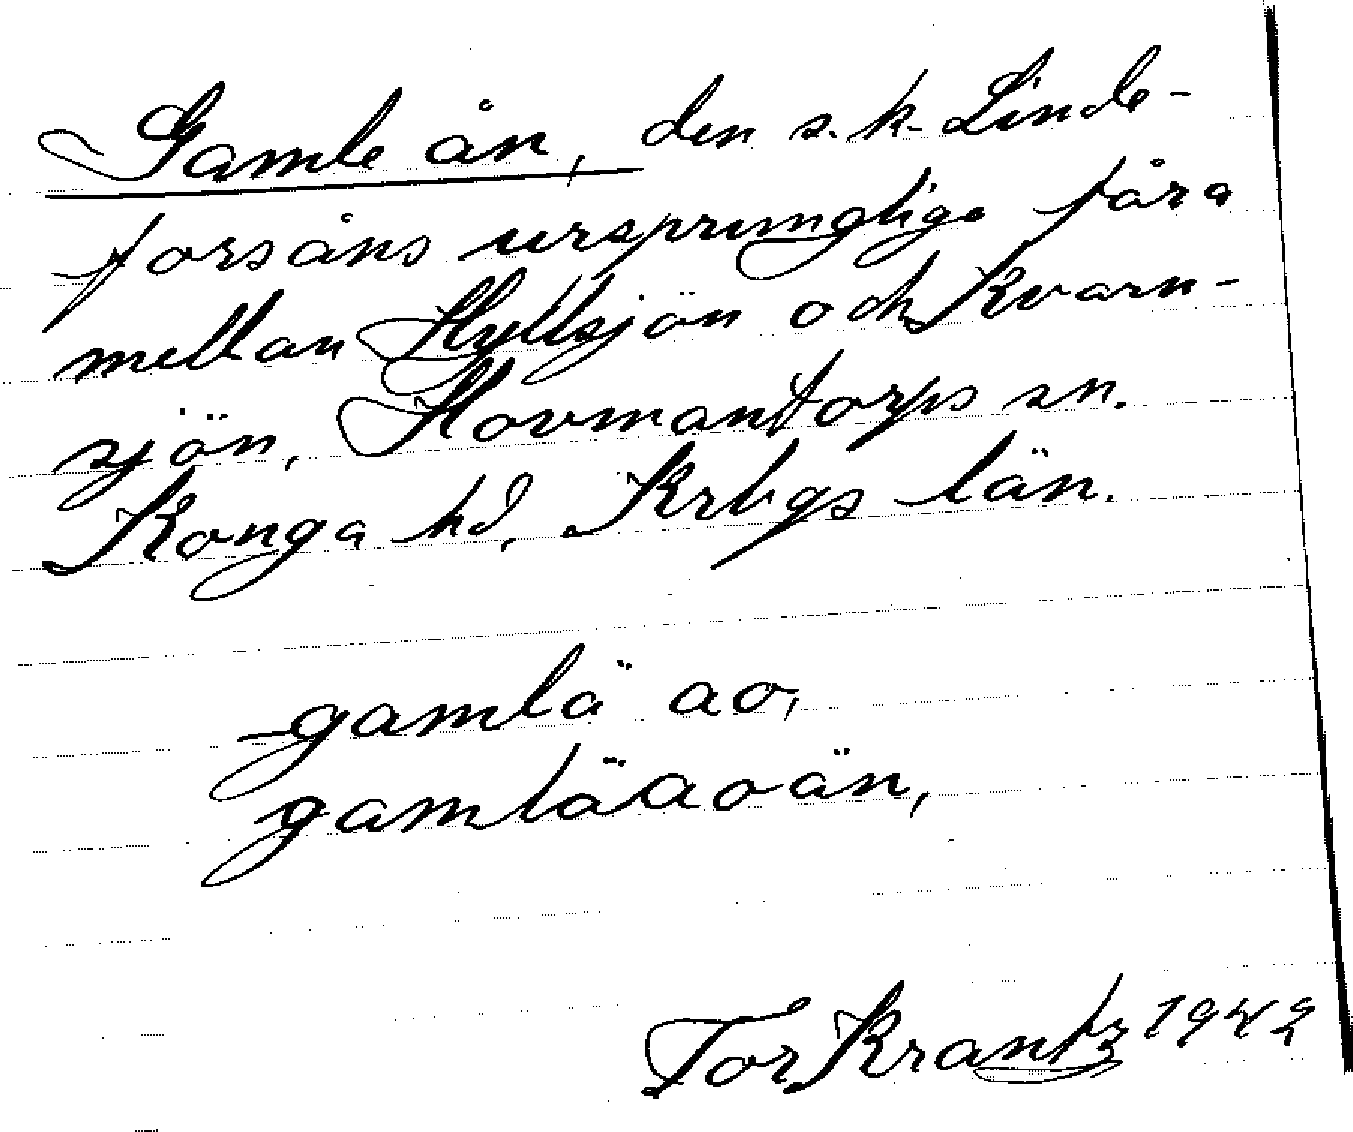 Gamle ån, den s.k. Linde-
forsåns ursprungliga fåra
mellan Hyllsjön och Kvarn-
sjön, Hovmantorps sn.
Konga hd, Krbgs län.
gamlä ao,
gamläaoän,
Tor Krantz 1942